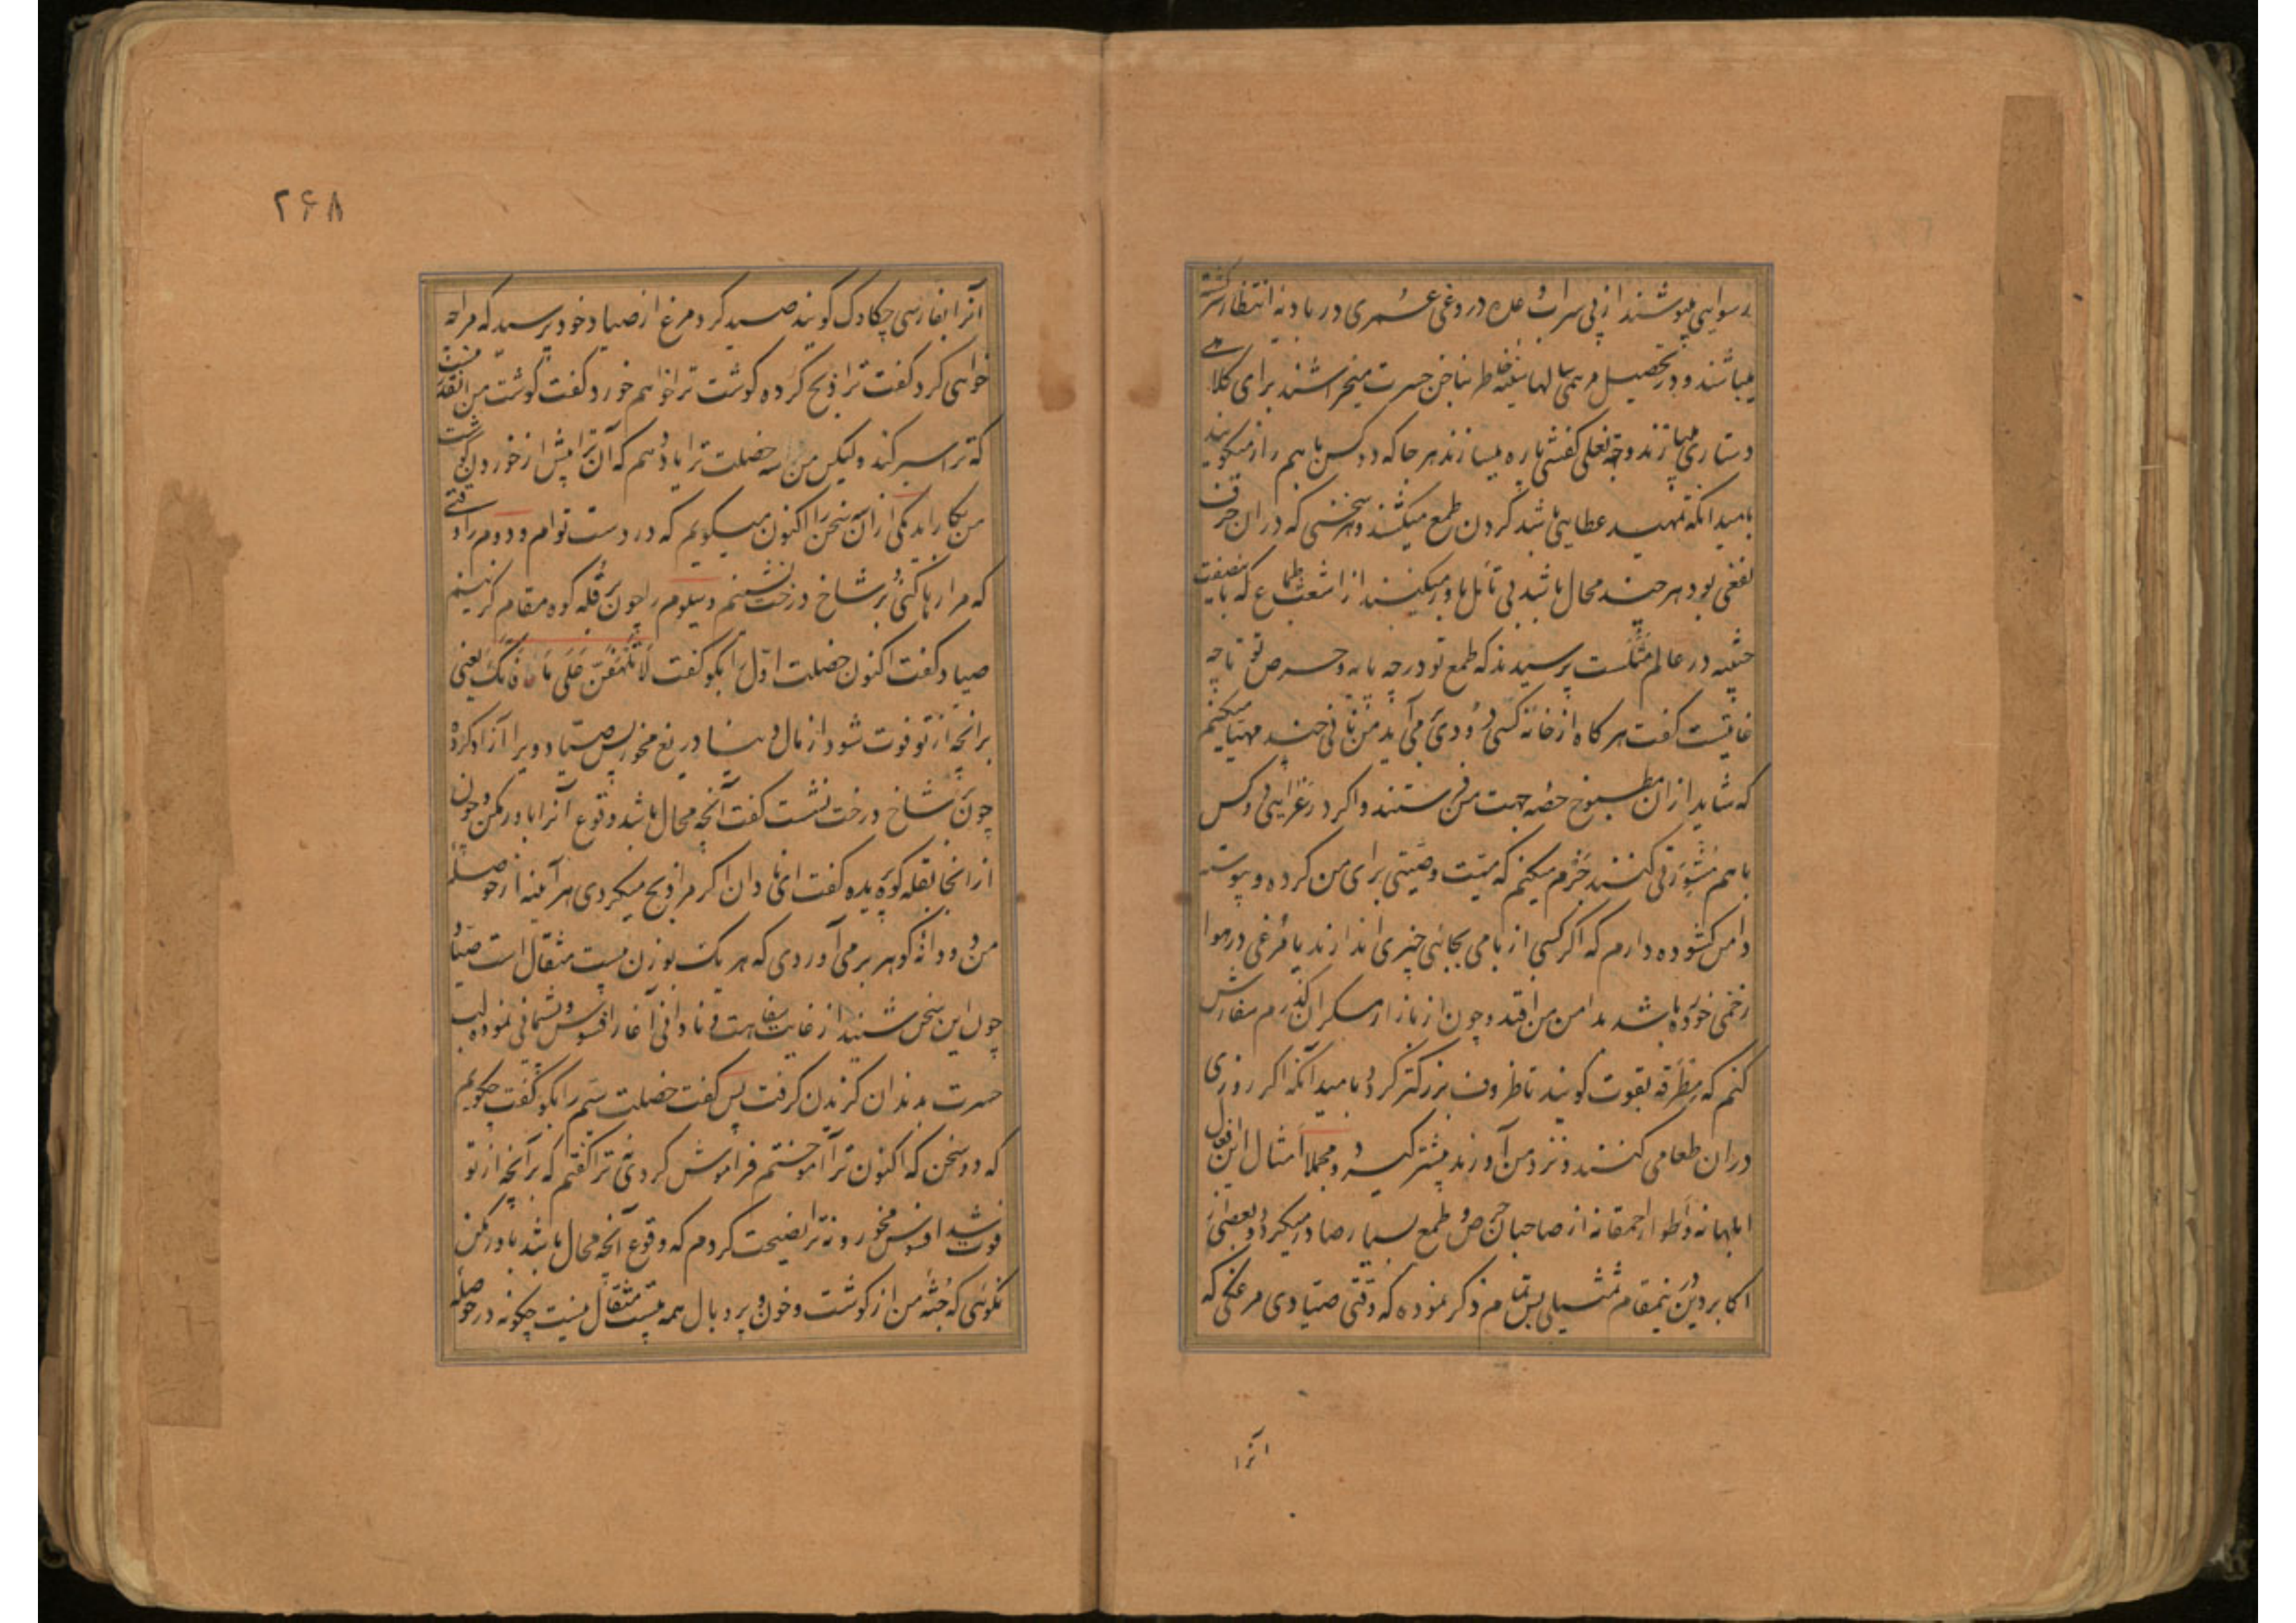 رسوایی پوشند از پی سراب وعده دروغی عمری در بادیه انتظار سرگشته
میباشند و در تحصیل مرهمی سالها سفینه خاطر بناخن حسرت میخراشند برای کلاهی
دستاری میبازند و بجهة نعلی کفشی پاره میسازند هر جا که دو کس با هم راز میکویند
بامید آنکه تمهید عطایی باشد کردن طمع میکشند و هر سخنی که در ان حرف
نفعی بود هر چند محال باشد بی تأمل باور میکنند از اشعب طماع که باین صفت
در عالم مثلست پرسیدند که طمع تو در چه پایه و حرص تو تا چه
غایتست کفت هر کاه از خانه کسی دودی بر می آید من نانی چند مهیا میکنم
که شاید از ان مطبوخ حصه جهت من فرستند و اکر در عزایی دو کس
با هم مشورتی کنند جزم میکنم که میت وصیتی برای من کرده و پیوسته
دامن کشوده دارم که اکر کسی از بامی بجائی چیزی اندازند یا مرغی در هوا
زخمی خورده باشد بدامن من افتد و چون از بازار مسکران کذرم سفارش
کنم که مطرقه بقوت کوبند تا ظروف بزرکتر کردد بامید آنکه اکر روزی
دران طعامی کنند و نزد من آورند بیشتر کیرد و مجملا امثال این افعال
ابلهانه و اطوار احمقانه از صاحبان حرص و طمع بسیار صادر میکردد و بعضی از
اکابر دین درینمقام تمثیلی بس تمام ذکر نموده که وقتی صیادی مرغکی که
انرا
۲۶۸
آنرا بفارسی چکاوک کویند صید کرد مرغ از صیاد خود پرسید که مرا چه
خواهی کرد کفت ترا ذبح کرده کوشت ترا خواهم خورد کفت کوشت من انقدر نیست
که ترا سیر کند ولیکن من سه خصلت ترا یاد دهم که آن ترا پیش از خوردن کوشت
من بکار اید یکی از آن سه سخن را اکنون میکویم که در دست توام و دوم را وقتی
که مرا رها کنی و بر شاخ درخت نشینم و سیوم را چون بر قله کوه مقام کزینم
صیاد کفت اکنون خصلت اول را بکو کفت لا تلهفن علی ما فاتک یعنی
برانچه از تو فوت شود از مال دنیا دریغ مخور پس صیاد ویرا آزاد کرد
چون بر شاخ درخت نشست کفت آنچه محال باشد وقوع آنرا باور مکن و چون
از انجا بقله کوه پریده کفت ای نادان اکر مرا ذبح میکردی هر آینه از حوصله
من دو دانه کوهر بر می آوردی که هر یک بوزن بیست مثقال است صیاد
چون این سخن شنید از غایت سفاهت و نادانی آغاز افسوس و پشیمانی نموده لب
حسرت بدندان کزیدن کرفت پس کفت خصلت سیم را بکو کفت چکویم
که دو سخن که اکنون ترا آموختم فراموش کردی نه ترا کفتم که برآنچه از تو
فوت شد افسوس مخور و نه ترا نصیحت کردم که وقوع آنچه محال باشد باور مکن
نکوئی که جثه من از کوشت و خون و پر و بال همه بیست مثقال نیست چکونه در حوصله